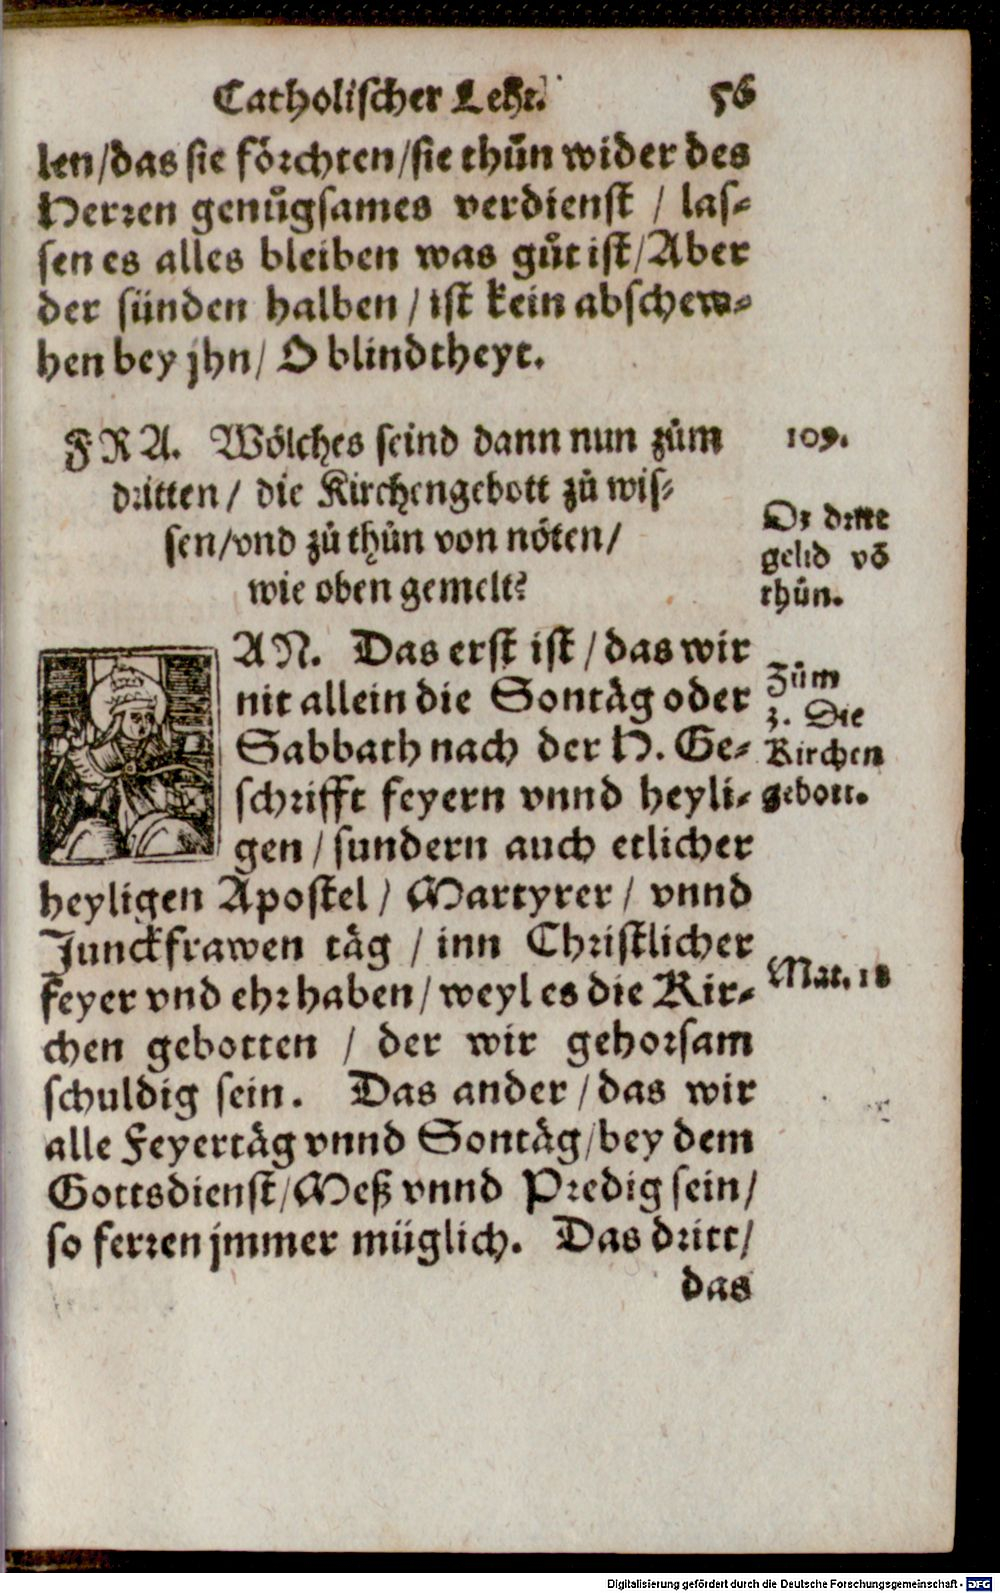 Catholischer Lehr. 56
len/das sie förchten/sie thůn wider des
Herren genůgsames verdienst / las-
sen es alles bleiben was gůt ist/Aber
der sünden halben / ist kein abschew-
hen bey jhn/ O blindtheyt.
FRA. Wölches seind dann nun zům
dritten / die Kirchengebott zů wis-
sen/vnd zů thůn von nöten/
wie oben gemelt?
109.
Dz dritte
gelid võ
thůn.
AN. Das erst ist / das wir
nit allein die Sontäg oder
Sabbath nach der H. Ge-
schrifft feyern vnnd heyli-
gen / sundern auch etlicher
heyligen Apostel / Martyrer / vnnd
Junckfrawen täg / inn Christlicher
feyer vnd ehr haben / weyl es die Kir-
chen gebotten / der wir gehorsam
schuldig sein. Das ander / das wir
alle Feyertäg vnnd Sontäg/bey dem
Gottsdienst/Meß vnnd Predig sein/
so ferren jmmer müglich. Das dritt/
das
Zům
3. Die
Kirchen
gebott.
Mat. 18
Digitalisierung gefördert durch die Deutsche Forschungsgemeinschaft - DFG